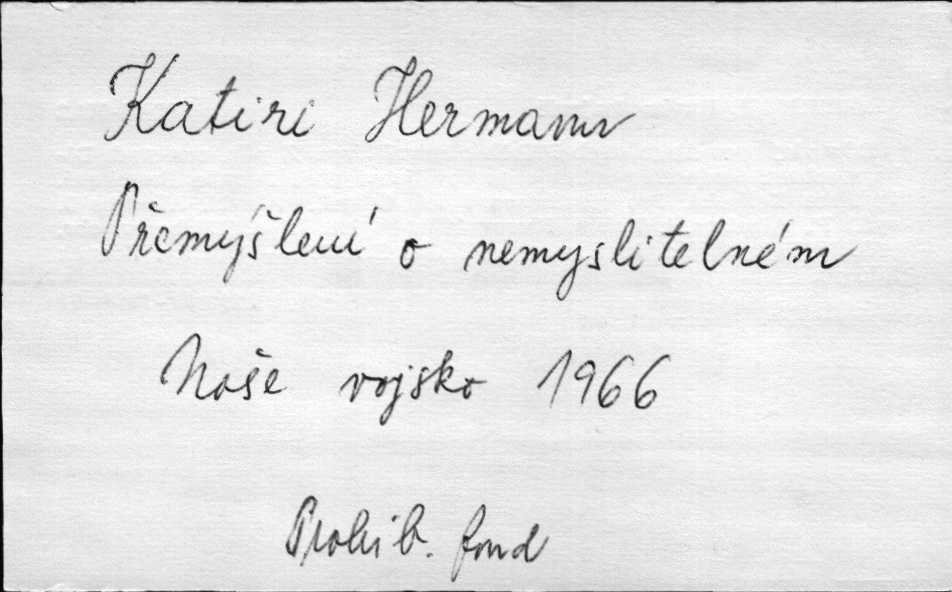 Katiri Hermann
Přemýšlení o nemyslitelném
Naše vojsko 1966
Prohib. fond